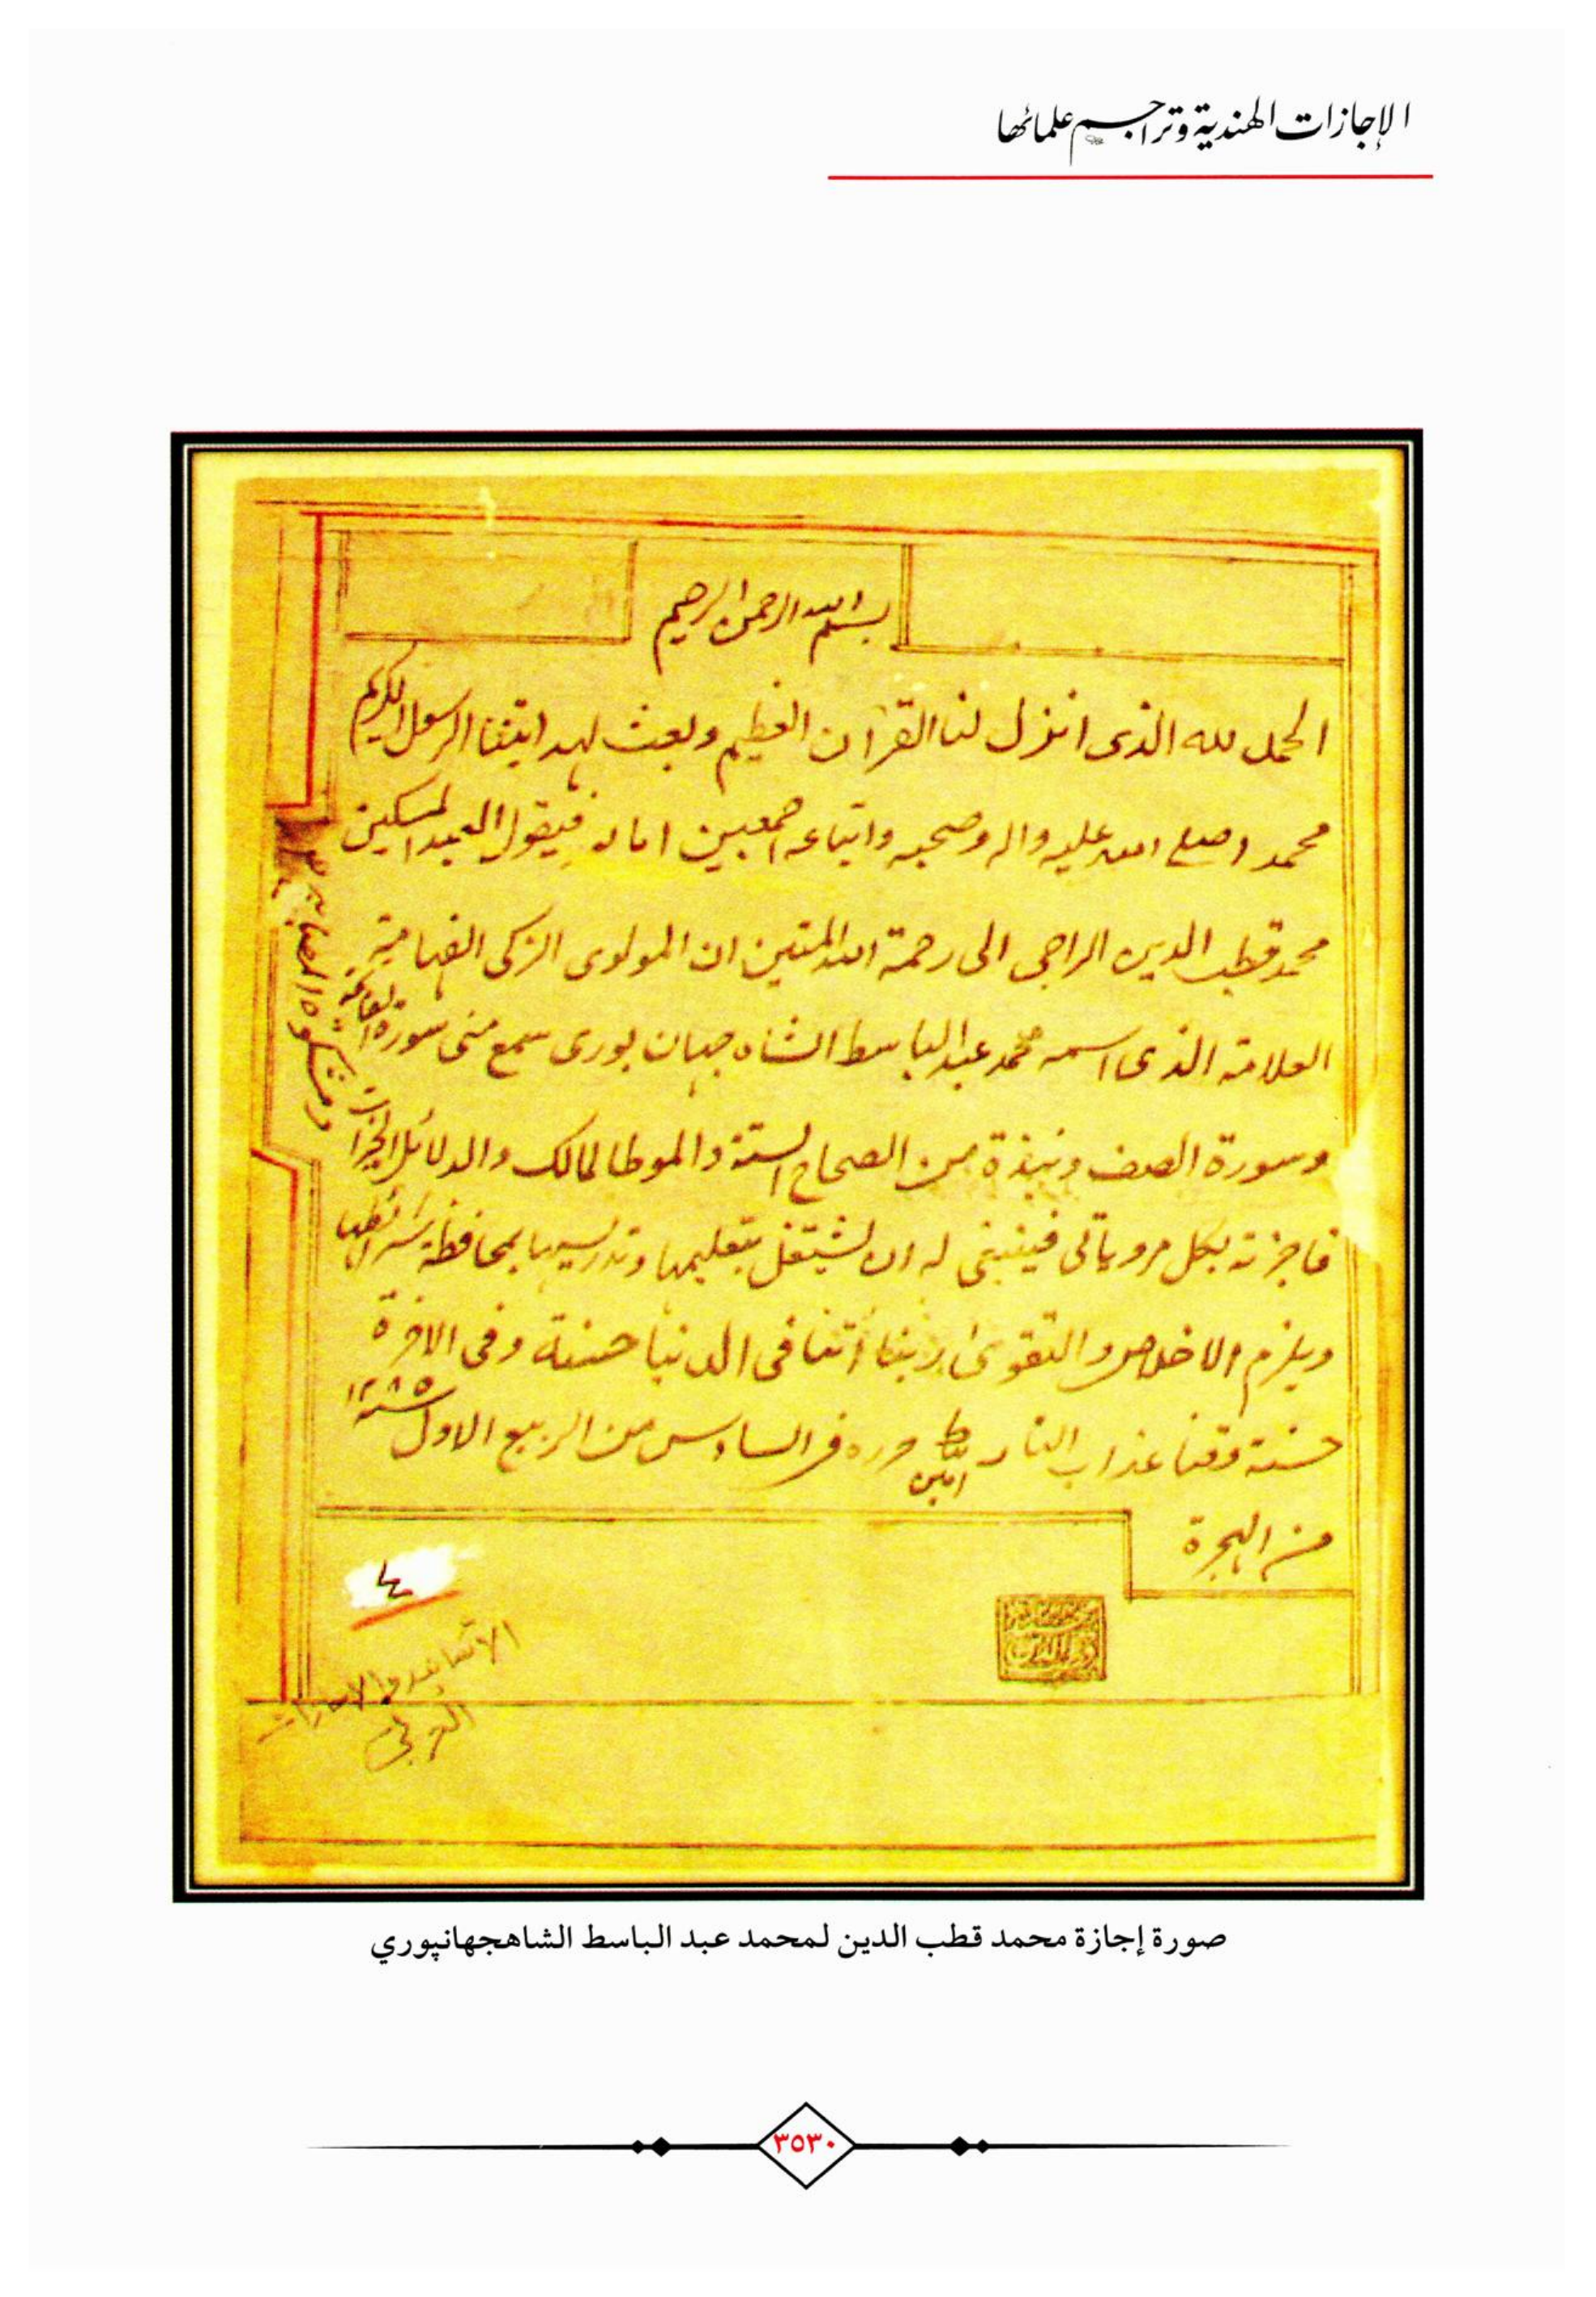 الإجازات الهندية وتراجم علمائها
بسم الله الرحمن الرحيم
الحمد لله الذى انزل لنا القرآن العظيم وبعث لهدايتنا الرسول الكريم
محمد صلى الله عليه واله وصحبه واتباعه اجمعين اما بعد فيقول العبد المسكين
محمد قطب الدين الراجى الى رحمة الله المتين ان المولوى الزكى الفهامة
العلامة الذى اسمه محمد عبد الباسط الشاه جهان بورى سمع منى سورة الفاتحة
وسورة الصف ونبذة من الصحاح الستة والموطا لمالك والدلائل الخيرات
ومشكوة المصابيح
فاجزته بكل مروياتى فينبغى له ان يشتغل بتعليمها وتدريسها بمحافظة شرائطها
ويلزم الاخلاص والتقوى ربنا أتنا فى الدنيا حسنة وفى الاخرة
حسنة وقنا عذاب النار امين حرره فى السادس من الربيع الاول سنة ١٢٨٥
من الهجرة
٤
الاسانيد والاجازات
صورة إجازة محمد قطب الدين لمحمد عبد الباسط الشاهجهانپوري
٣٥٣٠